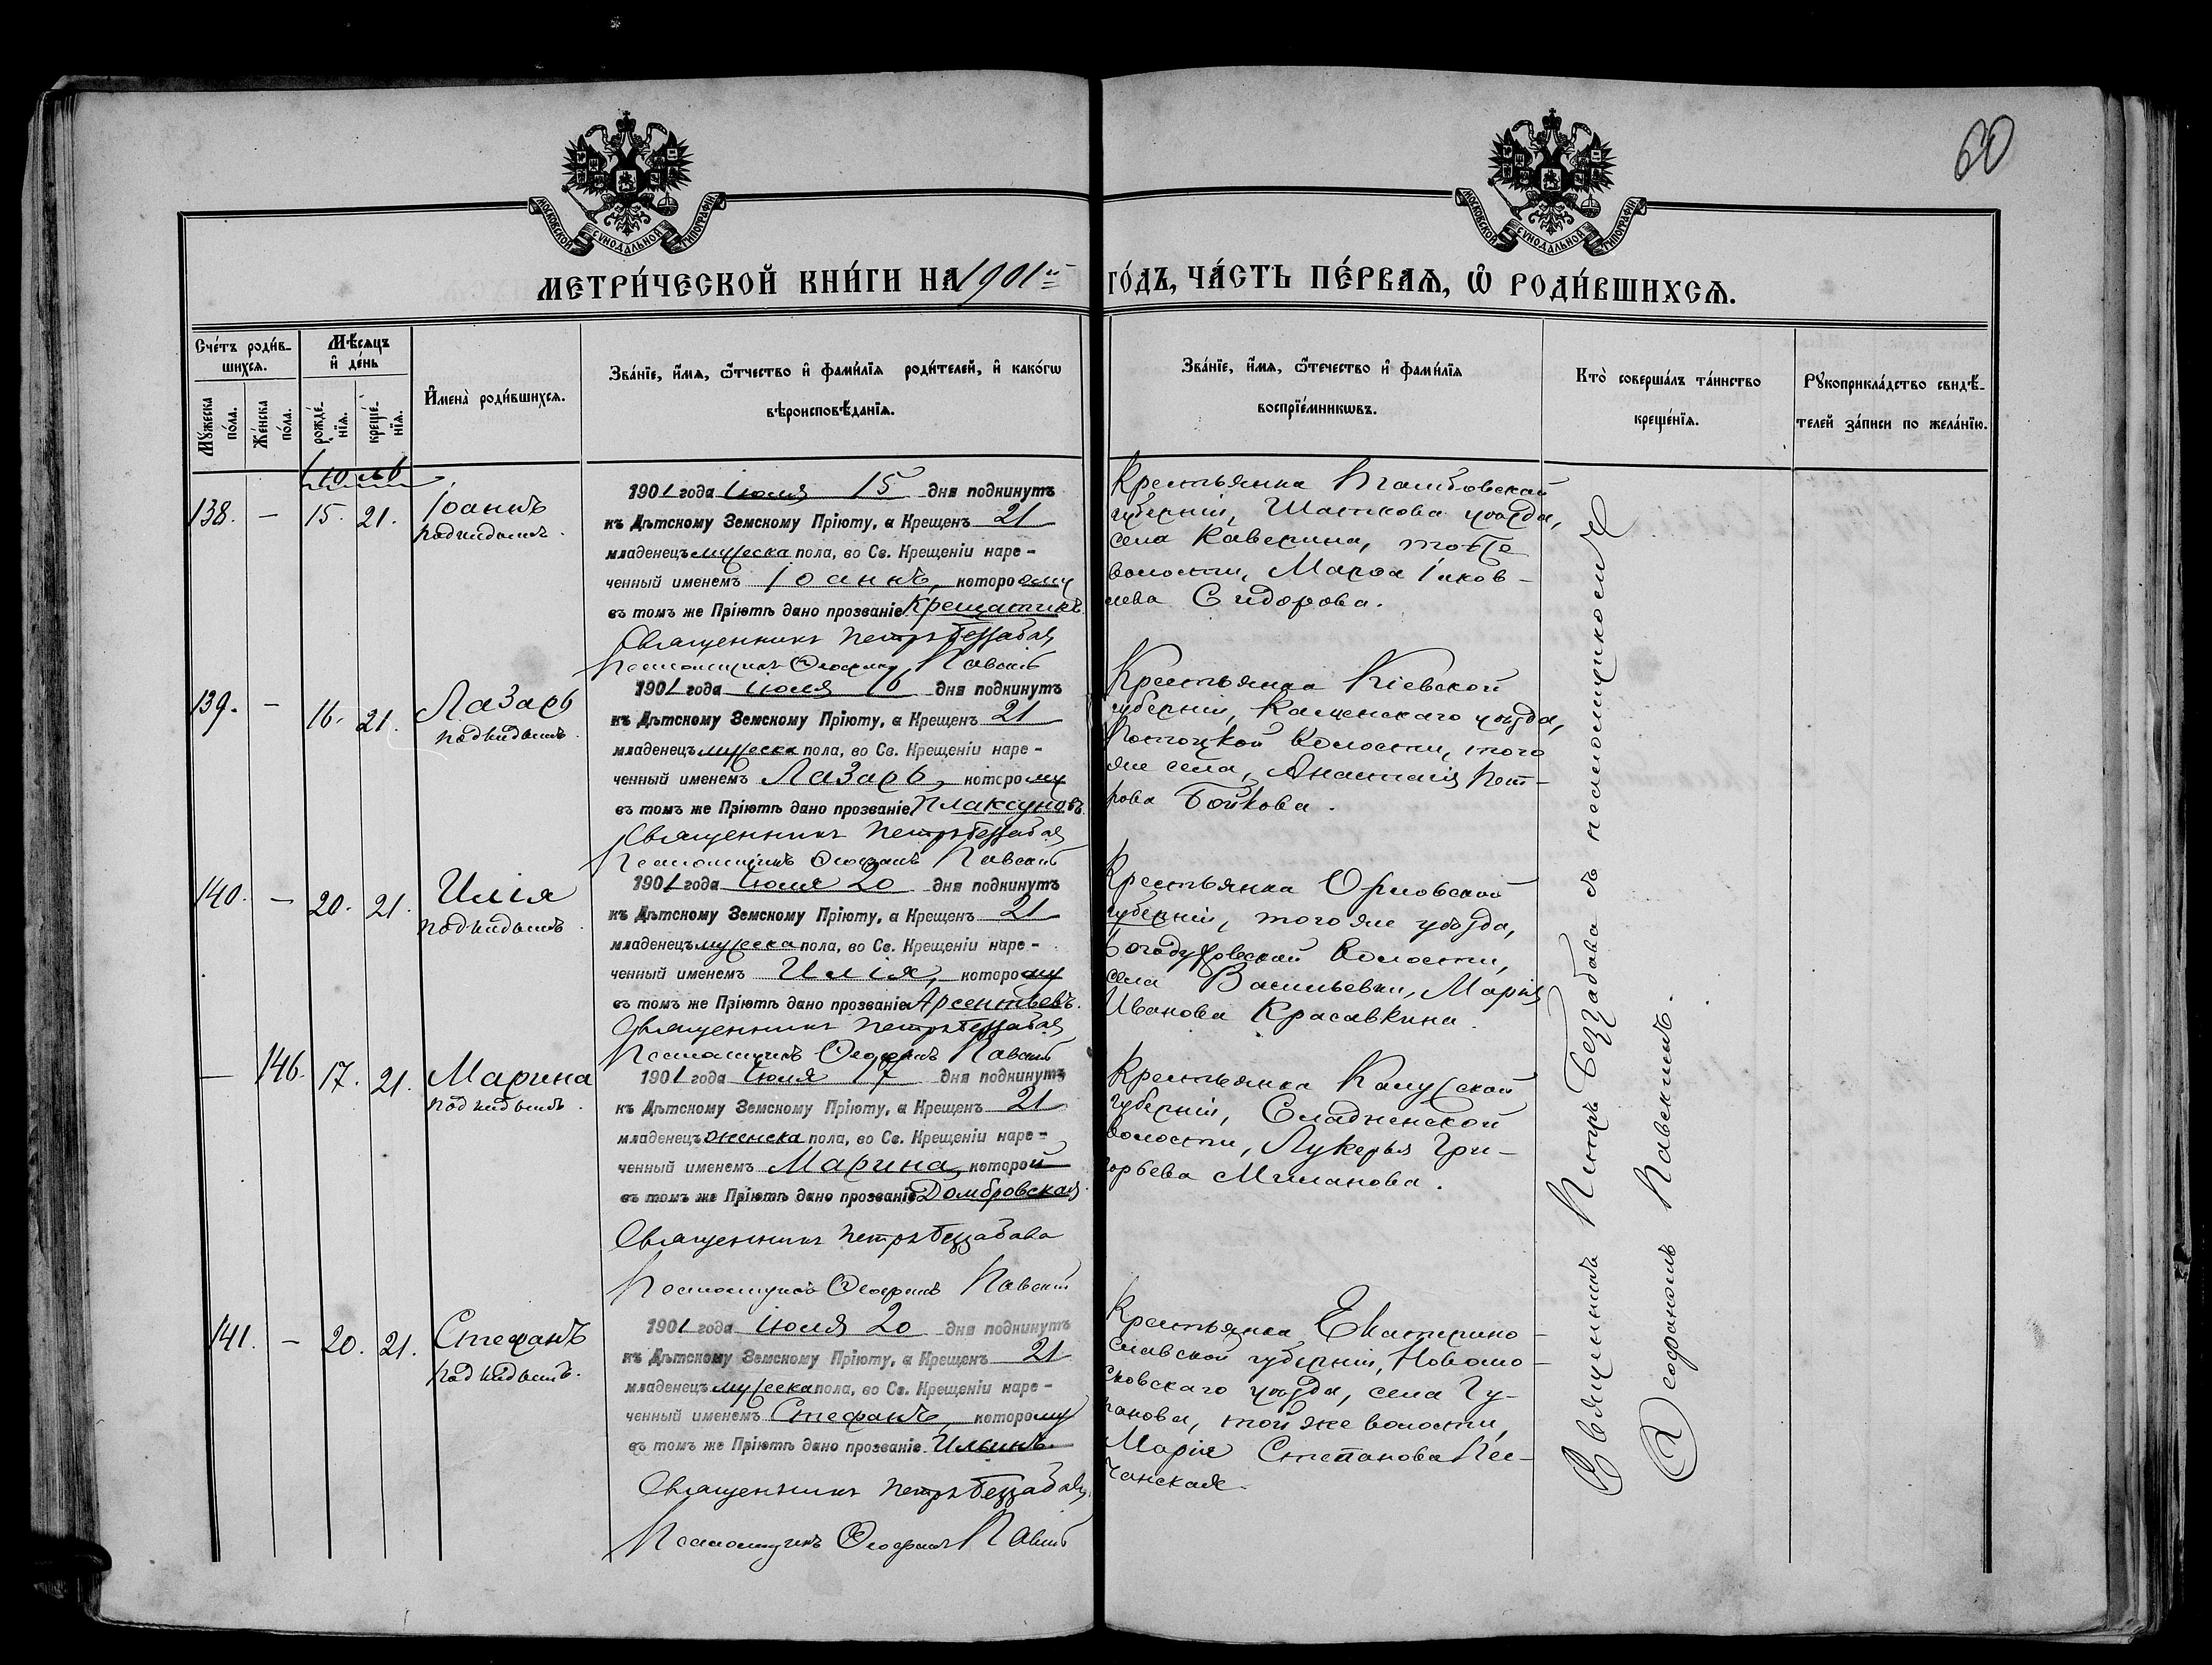 60
МОСКОВСКОЙ СѴНОДАЛЬНОЙ ТИПОГРАФІИ
МОСКОВСКОЙ СѴНОДАЛЬНОЙ ТИПОГРАФІИ
МЕТРИ́ЧЕСКОЙ КНИ́ГИ НА 1901й ГО́ДЪ, ЧА́СТЬ ПЕ́РВАЯ, Ѽ РОДИ́ВШИХСЯ.
Сче́тъ роди́в-
шихся.
Му́жеска
по́ла.
Же́нска
по́ла.
Мѣ́сяцъ
и҆ де́нь
рожде́-
нїя.
креще́-
нїя.
И҆мена̀ роди́вшихся.
Зва́нїе, и҆́мя, ѻ҆́тчество и҆ фами́лїя роди́телей, и҆ како́гѡ
вѣроисповѣ́данїя.
Зва́нїе, и҆́мя, ѻ҆́течество и҆ фами́лїя
воспрїе́мникѡвъ.
Кто̀ соверша́лъ та́инство
креще́нїя.
Рꙋкоприкла́дство свидѣ́-
телей за́писи по жела́нїю.
Июль
138. – 15. 21. Іоаннъ
подкидышъ.
1901 года Іюля 15 дня подкинутъ
къ Дѣтскому Земскому Пріюту, а Крещенъ 21
младенецъ мужеска пола, во Св. Крещеніи наре-
ченный именемъ Іоаннъ, которому
въ томъ же Пріютѣ дано прозваніе Крещатикъ.
Священникъ Петръ Беззабава
Псаломщикъ Ѳеофанъ Павскій
Крестьянка Тамбовской
губерніи, Шатскова уѣзда,
села Каверина, тойже
волости, Марѳа Іаков-
лева Сидорова.
139. – 16. 21. Лазарь
подкидышъ.
1901 года Іюля 16 дня подкинутъ
къ Дѣтскому Земскому Пріюту, а Крещенъ 21
младенецъ мужеска пола, во Св. Крещеніи наре-
ченный именемъ Лазарь, которому
въ томъ же Пріютѣ дано прозваніе Плаксуновъ
Священникъ Петръ Беззабава
Псаломщикъ Ѳеофанъ Павскій
Крестьянка Кіевской
губерніи, уѣзда,
волости, того
же села, Анастасія Пет-
рова Бойкова.
140. – 20. 21. Илія
подкидышъ.
1901 года Іюля 20 дня подкинутъ
къ Дѣтскому Земскому Пріюту, а Крещенъ 21
младенецъ мужеска пола, во Св. Крещеніи наре-
ченный именемъ Илія, которому
въ томъ же Пріютѣ дано прозваніе Арсентьевъ.
Священникъ Петръ Беззабава
Псаломщикъ Ѳеофанъ Павскій
Крестьянка Орловской
губерніи, того же уѣзда,
волости,
села Васильевки, Марія
Иванова Красавкина.
– 146. 17. 21. Марина
подкидышъ.
1901 года Іюля 17 дня подкинутъ
къ Дѣтскому Земскому Пріюту, а Крещенъ 21
младенецъ женска пола, во Св. Крещеніи наре-
ченный именемъ Марина, которой
въ томъ же Пріютѣ дано прозваніе Домбровская.
Священникъ Петръ Беззабава
Псаломщикъ Ѳеофанъ Павскій
Крестьянка Калужской
губерніи,
волости, Лукерья Гри-
горьева Миланова.
141. – 20. 21. Стефанъ
подкидышъ.
1901 года Іюля 20 дня подкинутъ
къ Дѣтскому Земскому Пріюту, а Крещенъ 21
младенецъ мужеска пола, во Св. Крещеніи наре-
ченный именемъ Стефанъ, которому
въ томъ же Пріютѣ дано прозваніе Ильинъ.
Священникъ Петръ Беззабава
Псаломщикъ Ѳеофанъ Павскій
Крестьянка Екатерино-
славской губерніи, Новомо-
сковскаго уѣзда, села
той же волости,
Марія Степанова Пес-
чанская.
Священникъ Петръ Беззабава съ псаломщикомъ
Ѳеофаномъ Павскимъ.